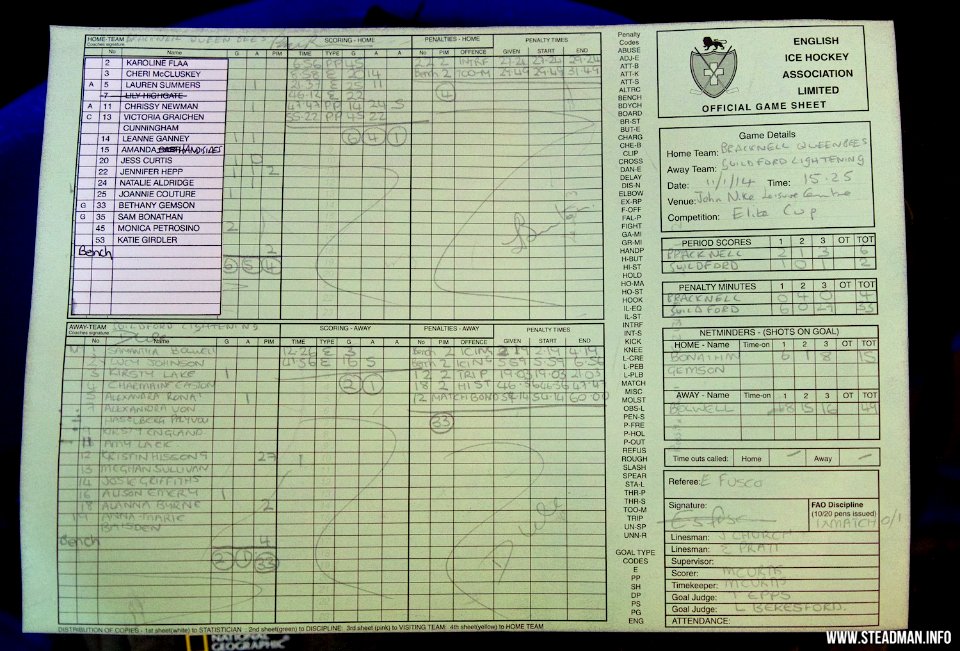 HOME-TEAM BRACKNELL QUEEN BEES
Coaches signature
SCORING - HOME
PENALTIES - HOME
PENALTY TIMES
No Name G A PIM TIME TYPE G A A No PIM OFFENCE GIVEN START END
2 KAROLINE FLAA 6.56 PP 45 22 2 INTRF 27.24 27.24 29.24
3 CHERI McCLUSKEY 8.58 E 20 14 Bench 2 TOO-M 29.49 29.49 31.49
A 5 LAUREN SUMMERS 1 21.37 E 25 11 4
7 LILY HIGHGATE 46.14 E 22
A 11 CHRISSY NEWMAN 1 47.47 PP 14 24 5
C 13 VICTORIA GRAICHEN 55.22 PP 45 22
CUNNINGHAM
14 LEANNE GANNEY 1 1 6 4 1
15 AMANDA
20 JESS CURTIS 1
22 JENNIFER HEPP 1 1 2
24 NATALIE ALDRIDGE 1
25 JOANNIE COUTURE 1
G 33 BETHANY GEMSON
G 35 SAM BONATHAN
45 MONICA PETROSINO 2
53 KATIE GIRDLER
Bench 2
6 5 4
AWAY-TEAM GUILDFORD LIGHTENING
Coaches signature
SCORING - AWAY
PENALTIES - AWAY
PENALTY TIMES
No Name G A PIM TIME TYPE G A A No PIM OFFENCE GIVEN START END
1 SAMANTHA BOLWELL 12.26 E 3 Bench 2 ICING 2.19 2.19 4.19
2 LUCY JOHNSON 41.56 E 16 5 Bench 2 ICING
3 KIRSTY LAKE 1 12 2 TRIP 19.03 19.03 21.03
4 CHARMAINE EASTON 2 1 18 2 HI ST 46.56 46.56 47.47
5 ALEXANDRA RONA 1 12 MATCH BOARD 54.14 54.14 60.00
7 ALEXANDRA VON
33
9 KIRSTY ENGLAND
11 AMY LACK
12 KRISTIN HISSONG 27 1
13 MEGHAN SULLIVAN
14 JOSIE GRIFFITHS
16 ALISON EMERY 1
18 ALANNA BYRNE 2
19 ANNA-MARIE
BAISDEN
Bench 4
2 1 33
DISTRIBUTION OF COPIES - 1st sheet(white) to STATISTICIAN : 2nd sheet(green) to DISCIPLINE: 3rd sheet (pink) to VISITING TEAM: 4th sheet(yellow) to HOME TEAM
Penalty
Codes
ABUSE
ADJ-E
ATT-B
ATT-K
ATT-S
ALTRC
BENCH
BDYCH
BOARD
BR-ST
BUT-E
CHARG
CHE-B
CLIP
CROSS
DAN-E
DELAY
DIS-N
ELBOW
EX-RP
F-OFF
FAL-P
FIGHT
GA-MI
GR-MI
HANDP
H-BUT
HI-ST
HOLD
HO-MA
HO-ST
HOOK
IL-EQ
IL-ST
INTRF
INT-S
KICK
KNEE
L-CRE
L-PEB
L-PLB
MATCH
MISC
MOLST
OBS-L
PEN-S
P-FRE
P-HOL
P-OUT
REFUS
ROUGH
SLASH
SPEAR
STA-L
THR-P
THR-S
TOO-M
TRIP
UN-SP
UNN-R
GOAL TYPE
CODES
E
PP
SH
DP
PS
PG
ENG
ENGLISH
ICE HOCKEY
ASSOCIATION
LIMITED
OFFICIAL GAME SHEET
Game Details
Home Team: BRACKNELL QUEENBEES
Away Team: GUILDFORD LIGHTENING
Date: 11/1/14 Time: 15.25
Venue: John Nike Leisure Centre
Competition: Elite Cup
PERIOD SCORES 1 2 3 OT TOT
BRACKNELL 2 1 3 6
GUILDFORD 1 0 1 2
PENALTY MINUTES 1 2 3 OT TOT
BRACKNELL 0 4 0 4
GUILDFORD 6 0 27 33
NETMINDERS - (SHOTS ON GOAL)
HOME - Name Time-on 1 2 3 OT TOT
BONATHAN 6 1 8 15
GEMSON
AWAY - Name Time-on 1 2 3 OT TOT
BOLWELL 18 15 16 49
Time outs called: Home - Away -
Referee: E FUSCO
Signature:
FAO Discipline
(10/20 pens issued)
1xMATCH 0/1
Linesman: J CHURCH
Linesman: E PRATT
Supervisor:
Scorer: M CURAS
Timekeeper: M CURAS
Goal Judge: T EPPS
Goal Judge: L BERESFORD.
ATTENDANCE:
NATIONAL
GEOGRAPHIC
WWW.STEADMAN.INFO